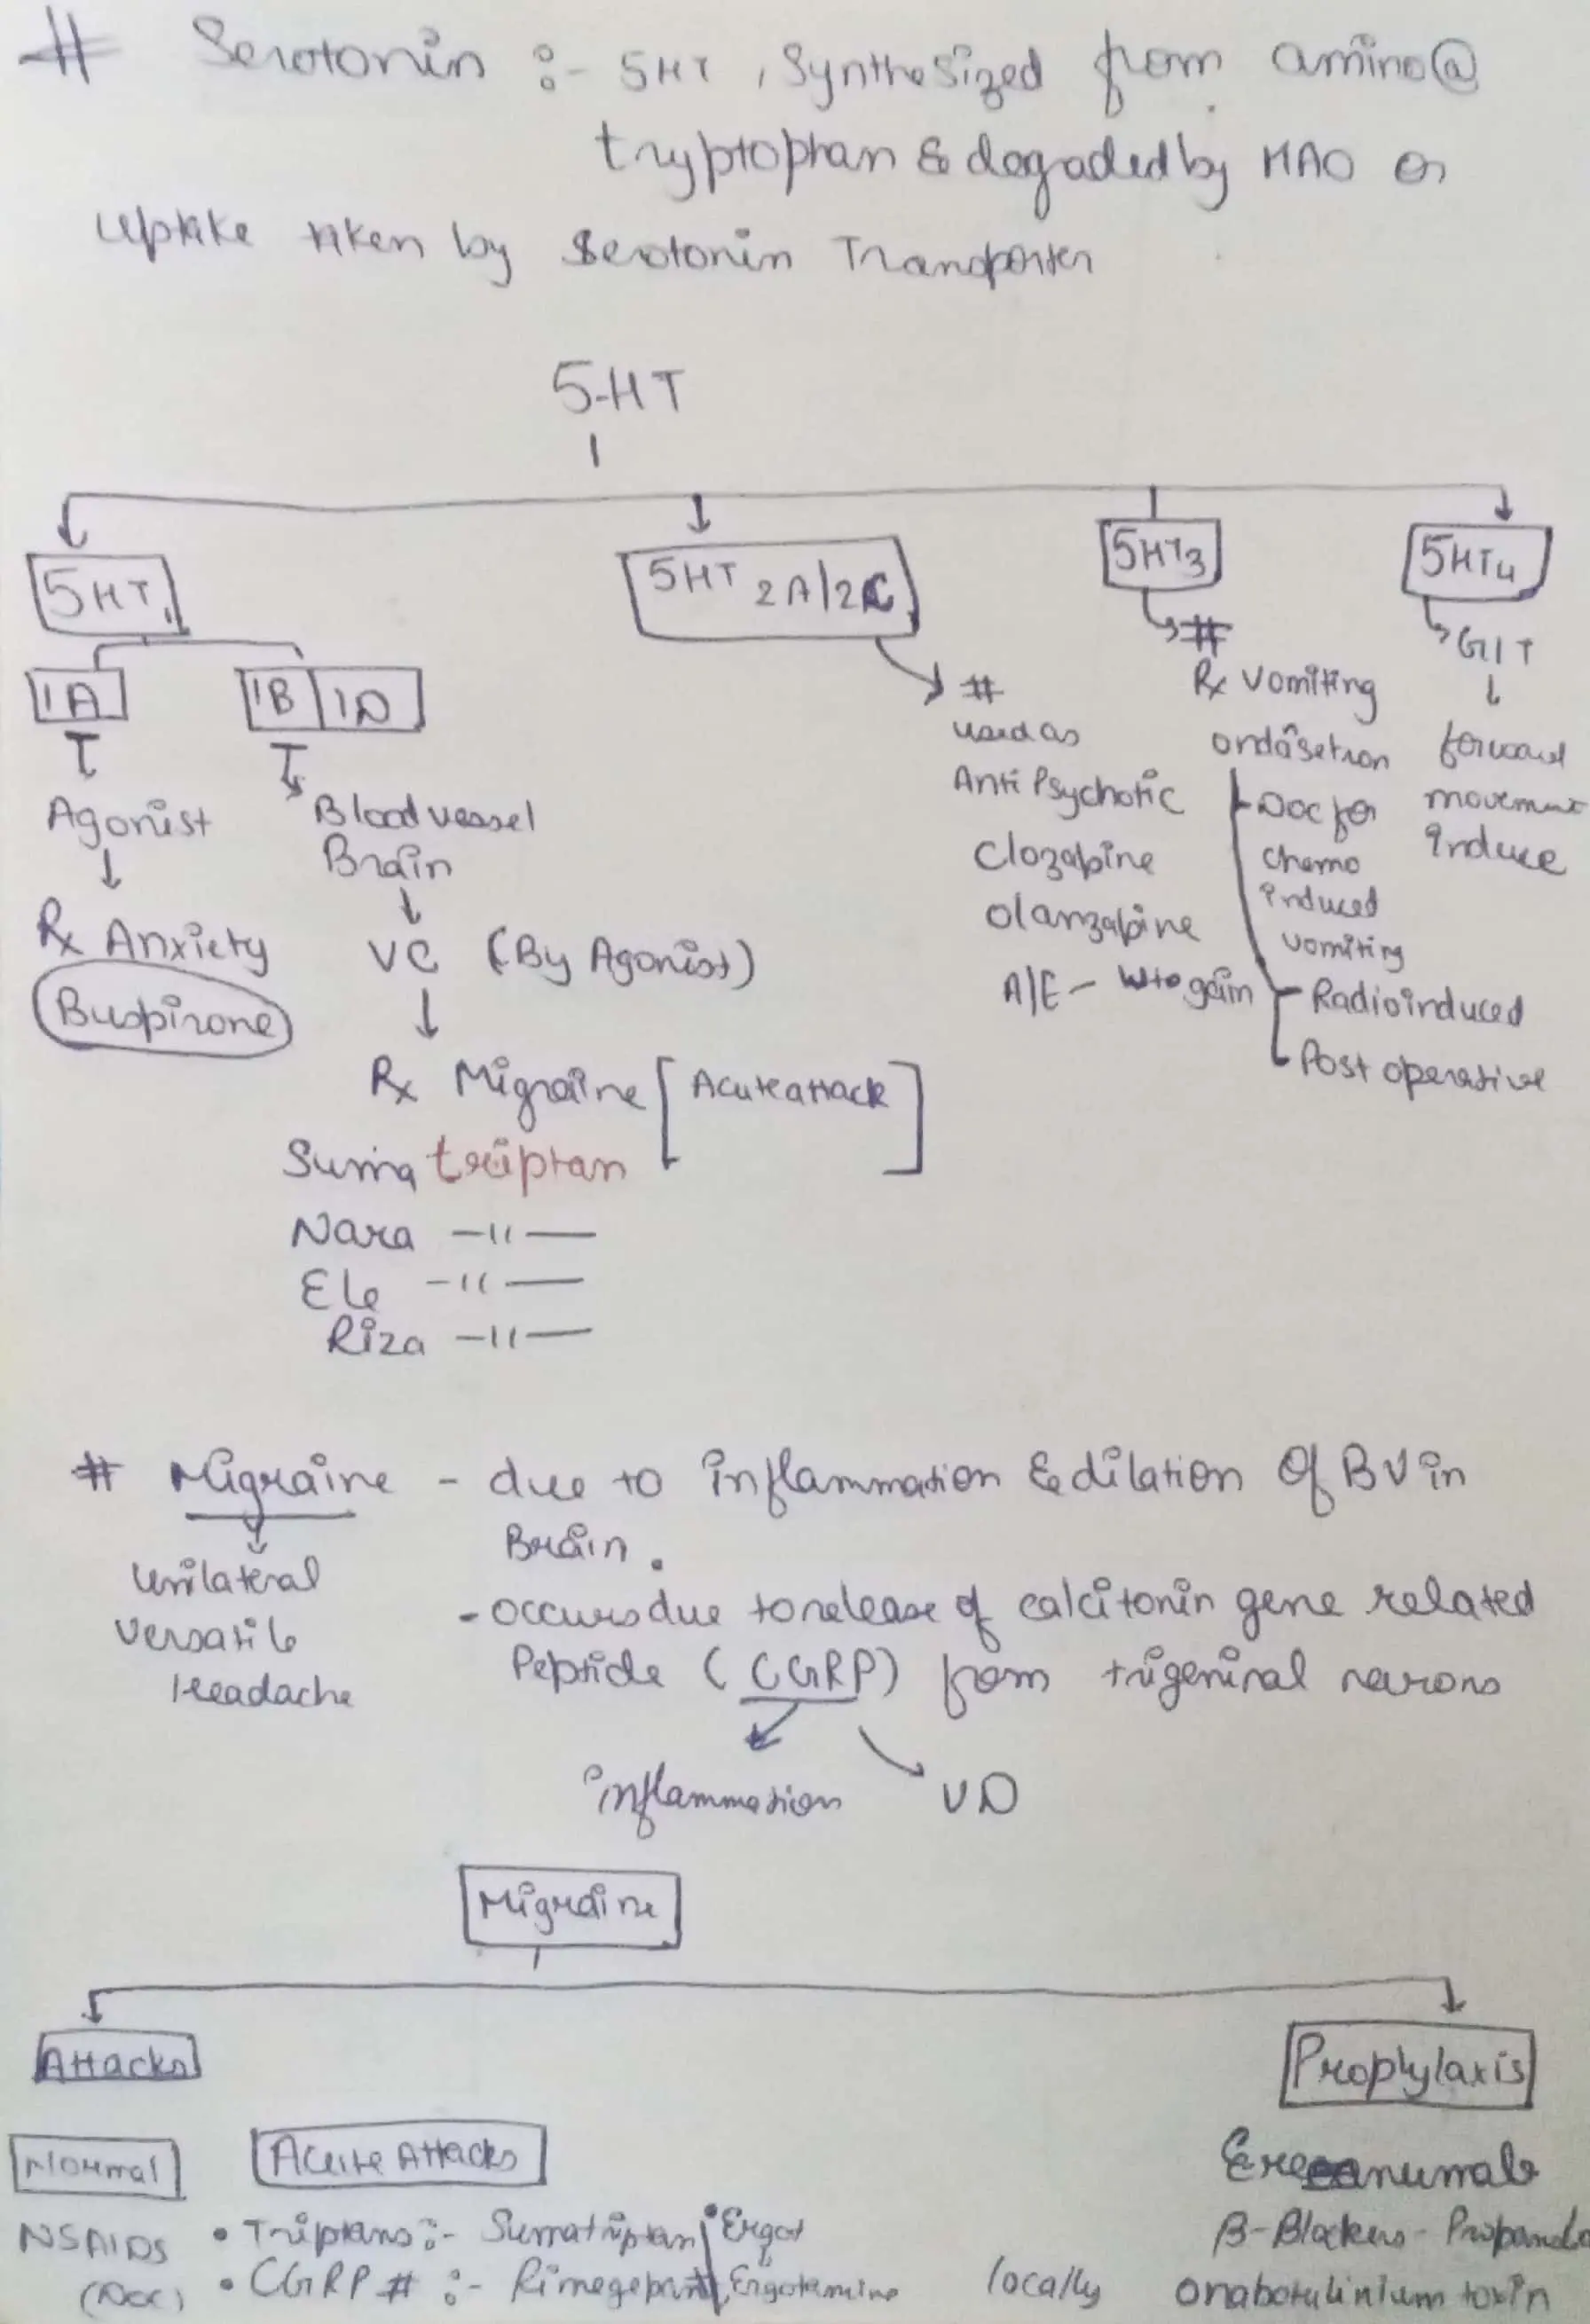 # Serotonin :- 5HT, Synthesized from amino@
tryptophan & degraded by MAO or
uptake taken by Serotonin Transporter
5-HT
5HT1
1A
1B | 1D
Agonist
Rx Anxiety
Buspirone
Blood vessel
Brain
VC (By Agonist)
Rx Migraine [Acute attack]
Suma triptan
Nara —〃—
Ele —〃—
Riza —〃—
5HT 2A/2C
#
used as
Anti Psychotic
Clozapine
Olanzapine
A/E - wt gain
5HT3
#
Rx vomiting
ondansetron
DOC for
chemo
induced
vomiting
Radioinduced
Post operative
5HT4
GIT
forward
movement
induce
# Migraine - due to inflammation & dilation Of BV in
Brain.
Unilateral
Versatile
Headache
- occurs due to release of calcitonin gene related
Peptide (CGRP) from trigeminal neurons
inflammation
VD
Migraine
Attacks
Prophylaxis
Normal
NSAIDS
(DOC)
Acute Attacks
• Triptans :- Sumatriptan
• CGRP # :- Rimegepant
• Ergot
Ergotamine
Erenumab
β-Blockers - Propanolo
locally onabotulinium toxin